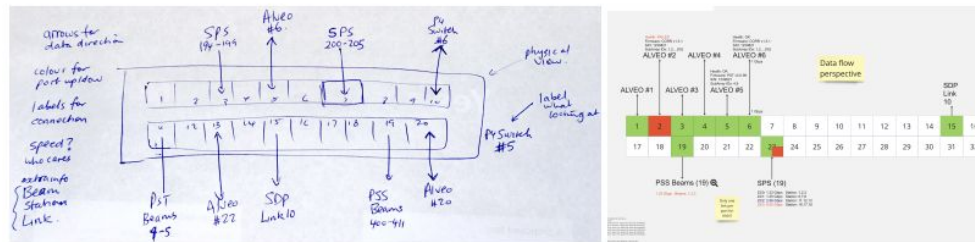 arrows for
data direction
colour for
port up/down
labels for
connection
speed?
who cares
extra info
Beam
Station
Link.
SPS
194-199
Alveo
#6
SPS
200-205
P4
Switch
#6
physical
view
label
what
looking at
P4 Switch
#5
1 2 3 4 5 6 7 8 9 10
11 12 13 14 15 16 17 18 19 20
PST
Beams
4-5
Alveo
#22
SDP
Link 10
PSS
Beams
400-411
Alveo
#20
ALVEO #2
ALVEO #4
ALVEO #6
ALVEO #1
ALVEO #3
ALVEO #5
Data flow
perspective
SDP
Link
10
1 2 3 4 5 6 7 8 9 10 11 12 13 14 15 16
17 18 19 20 21 22 23 24 25 26 27 28 29 30 31 32
PSS Beams (19)
SPS (19)